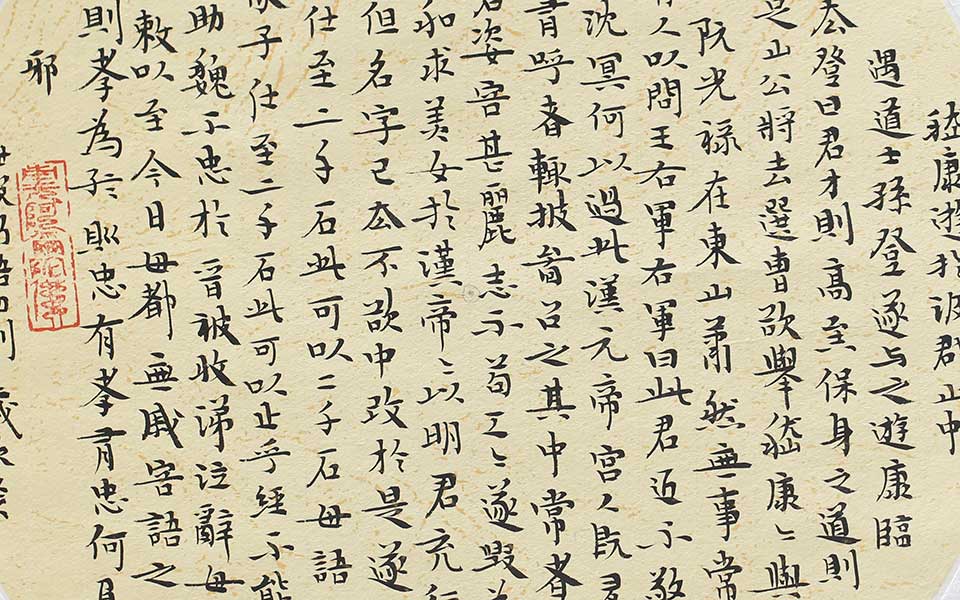 嵇康遊於汲郡山中
遇道士孫登遂与之遊康臨
去登曰君才則高矣保身之道則
是山公將去選曹欲舉嵇康〻與
阮光祿在東山蕭然無事常
有人以問王右軍右軍曰此君近不
沈冥何以過此漢元帝宮人既
有呼者輒披啚召之其中常者
姿容甚麗志不苟工〻遂毀
和求美女於漢帝〻以明君充行
但名字已去不欲中改於是遂
仕至二千石此可以二千石母語
子仕至二千石此可以止乎經不能
助魏不忠於晉被收涕泣辭母
敕以至今日母都無慼容語之
則孝為臣則忠有孝有忠何
邪
世說新語四則 歲次